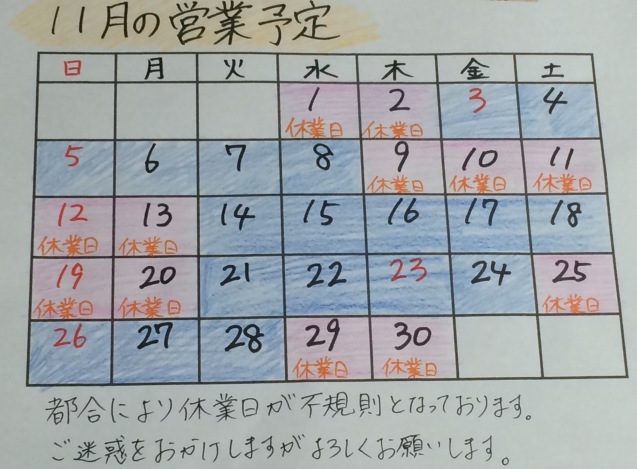 11月の営業予定
日 月 火 水 木 金 土
1 2 3 4
休業日 休業日
5 6 7 8 9 10 11
休業日 休業日 休業日
12 13 14 15 16 17 18
休業日 休業日
19 20 21 22 23 24 25
休業日 休業日 休業日
26 27 28 29 30
休業日 休業日
都合により休業日が不規則となっております。
ご迷惑をおかけしますがよろしくお願いします。